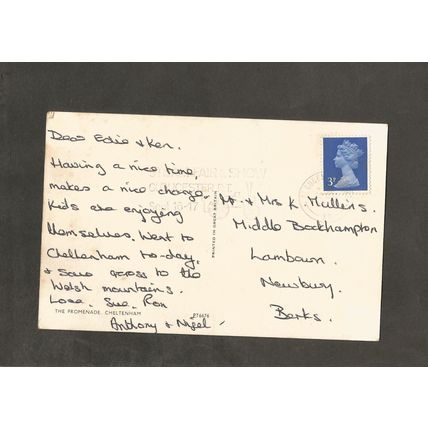 Dear Edie & Ken.
Having a nice time,
makes a nice change.
Kids are enjoying
themselves. Went to
Cheltenham to-day.
& saw across to the
Welsh mountains.
Love. Sue. Ron
Anthony & Nigel
THE PROMENADE. CHELTENHAM
PT6676
PRINTED IN GREAT BRITAIN
SHOW
GLOUCESTER
Sept 16-17
3P
Mr. & Mrs K. Mullins.
Middle Bockhampton
Lambourn.
Newbury.
Berks.